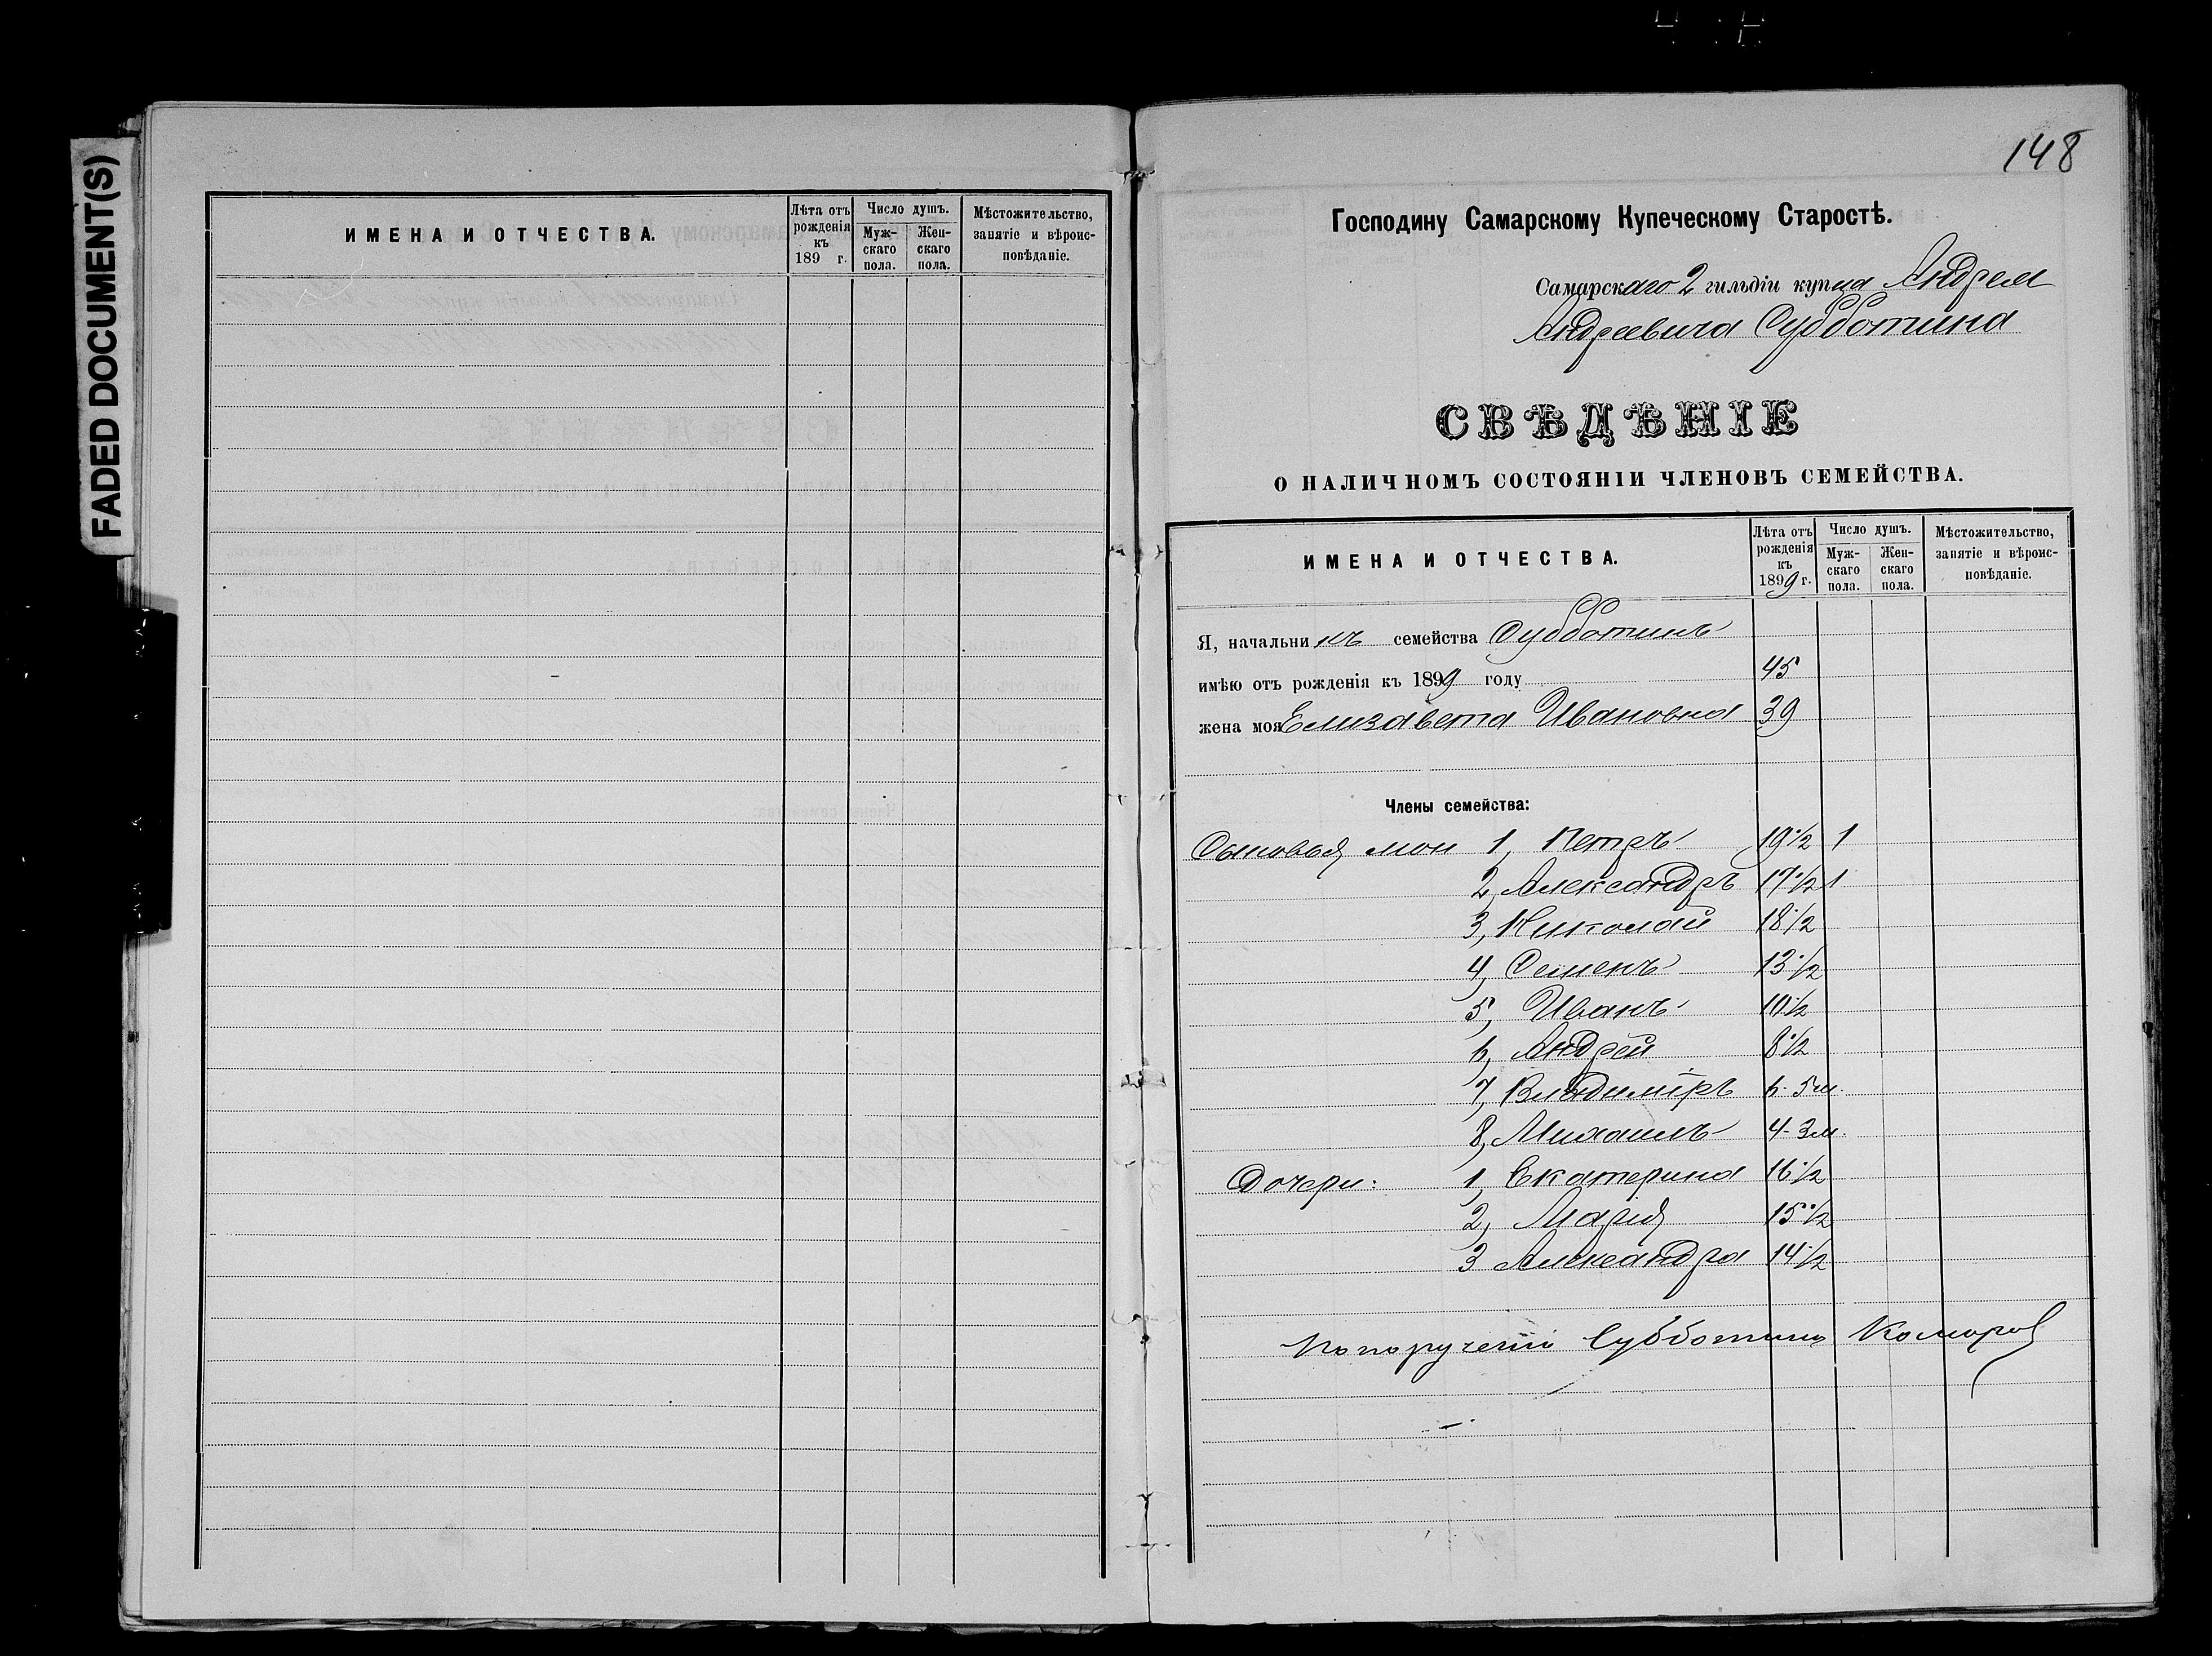 FADED DOCUMENT(S)
ИМЕНА И ОТЧЕСТВА.
Лѣта отъ рожденія къ 189 г.
Число душъ.
Муж-скаго пола.
Жен-скаго пола.
Мѣстожительство, занятіе и вѣроис-повѣданіе.
148
Господину Самарскому Купеческому Старостѣ.
Самарскаго 2 гильдіи купца Андрея
Андреевича Субботина
СВѢДѢНІЕ
О НАЛИЧНОМЪ СОСТОЯНІИ ЧЛЕНОВЪ СЕМЕЙСТВА.
ИМЕНА И ОТЧЕСТВА.
Лѣта отъ рожденія къ 1899 г.
Число душъ.
Муж-скаго пола.
Жен-скаго пола.
Мѣстожительство, занятіе и вѣроис-повѣданіе.
Я, начальникъ семейства Субботинъ
имѣю отъ рожденія къ 1899 году 45
жена моя Елизавета Ивановна 39
Члены семейства:
Сыновья мои 1, Петръ 19 1/2 1
2, Александръ 17 1/2 1
3, Николай 18 1/2
4, Семенъ 13 1/2
5, Иванъ 10 1/2
6, Андрей 8 1/2
7, Владиміръ 6. 5 м.
8, Михаилъ 4- 3 м.
Дочери: 1, Екатерина 16 1/2
2, Марія 15 1/2
3 Александра 14 1/2
По порученію Субботина Комаров